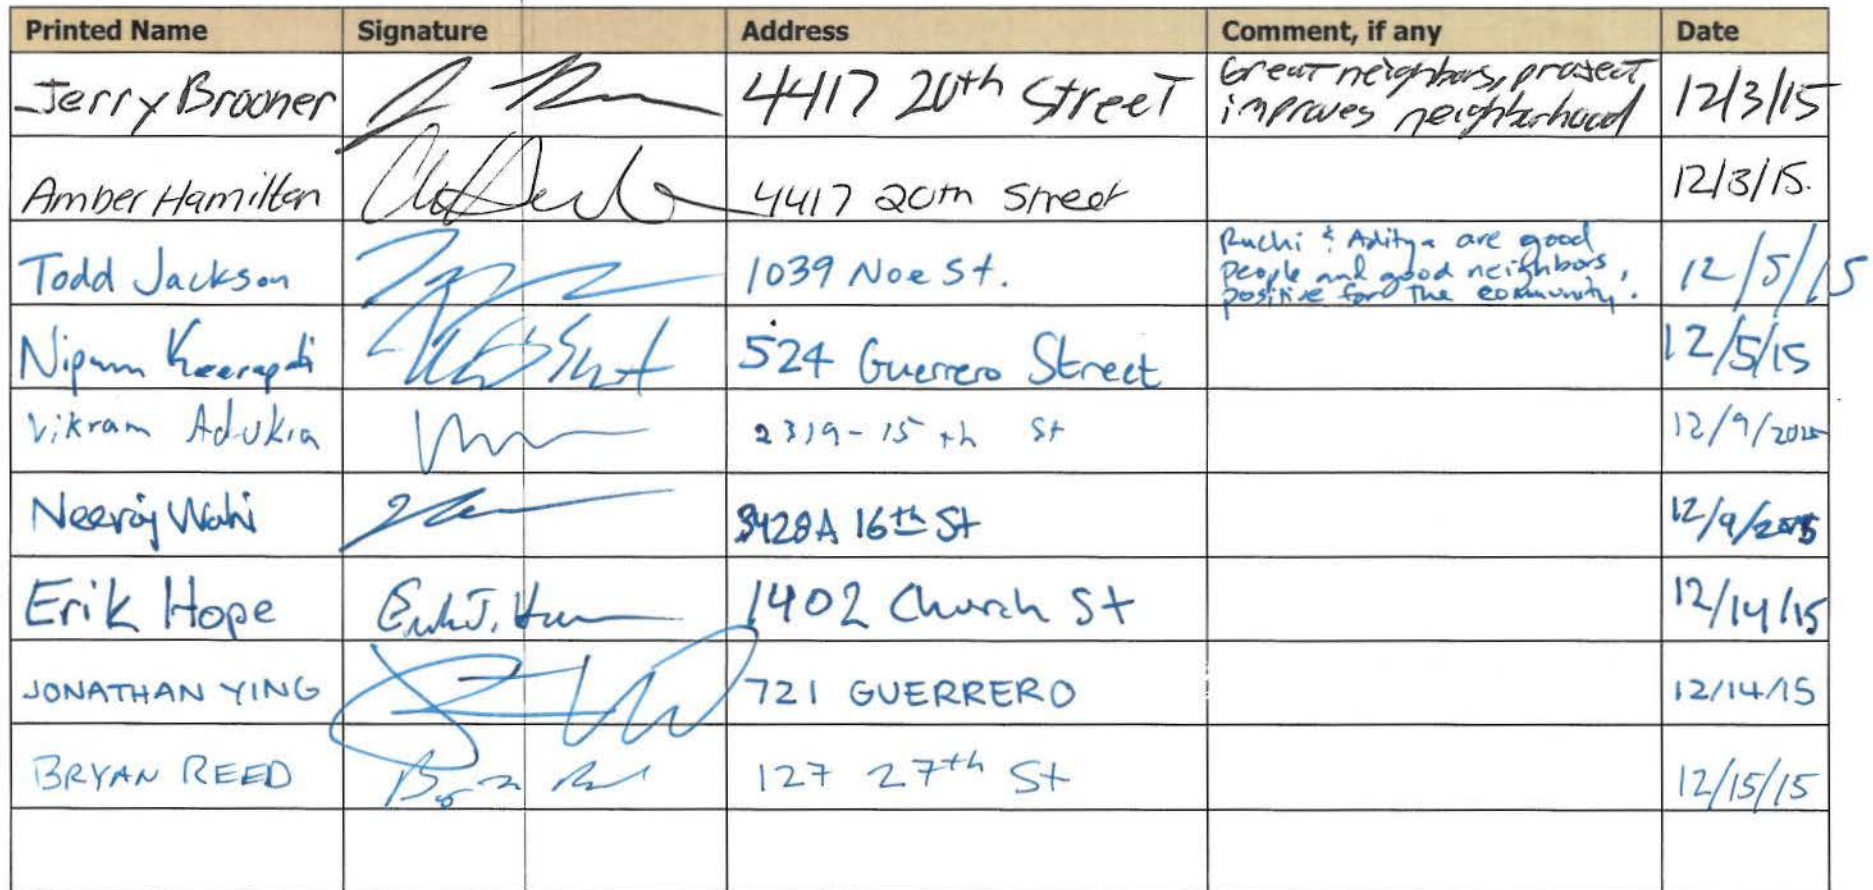 Printed Name Signature Address Comment, if any Date
Jerry Brooner 4417 20th Street Great neighbors, project 12/3/15
improves neighborhood
Amber Hamilton 4417 20th Street 12/3/15.
Todd Jackson 1039 Noe St. Ruchi & Aditya are good 12/5/15
people and good neighbors,
positive for the community.
Nipun 524 Guerrero Street 12/5/15
Vikram Adukia 2319-15th St 12/9/2015
Neeraj Wahi 3428A 16th St 12/9/2015
Erik Hope Erik J. 1402 Church St 12/14/15
JONATHAN YING 721 GUERRERO 12/14/15
BRYAN REED 127 27th St 12/15/15